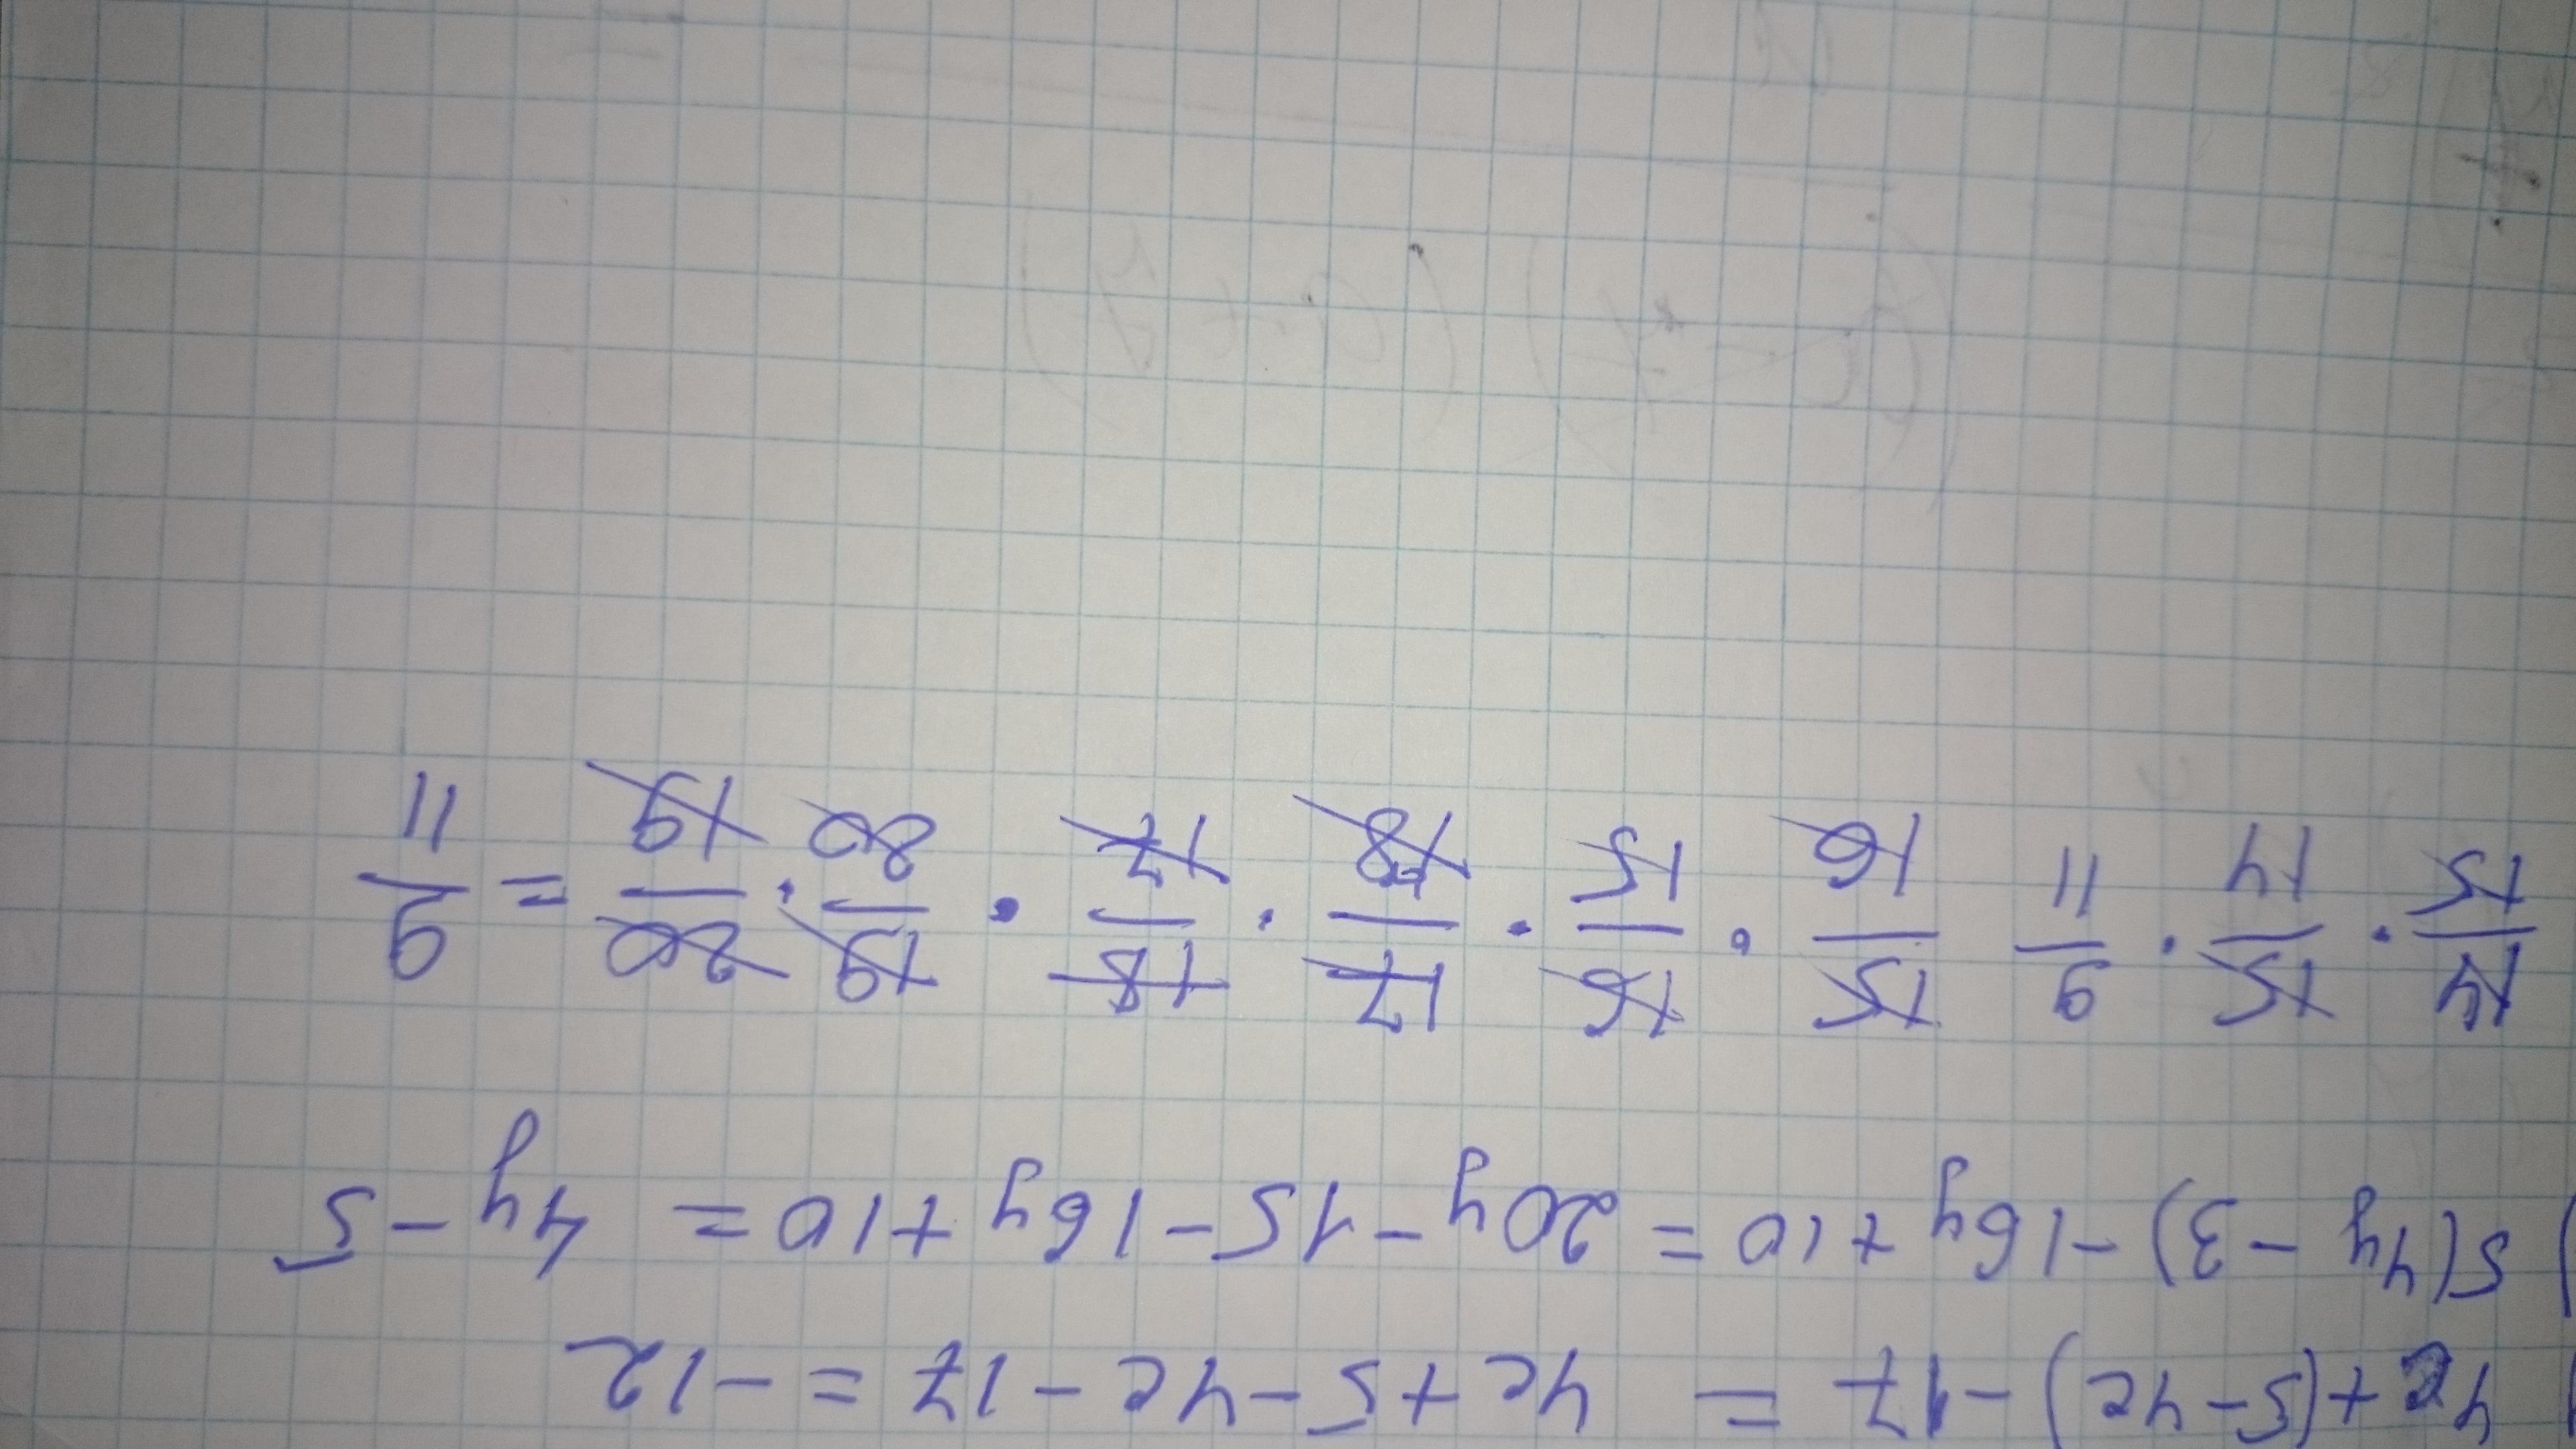 ) 4c+(5-4c)-17 = 4c+5-4c-17=-12
) 5(4y-3)-16y+10=20y-15-16y+10=4y-5
14/15 · 15/14 · 9/11 15/16 · 16/15 · 17/18 · 18/17 · 19/20 · 20/19 = 9/11